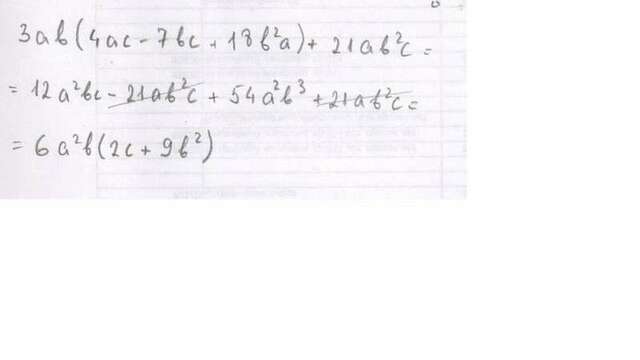 3ab(4ac - 7bc + 18b²a) + 21ab²c =
= 12a²bc - 21ab²c + 54a²b³ + 21ab²c =
= 6a²b(2c + 9b²)